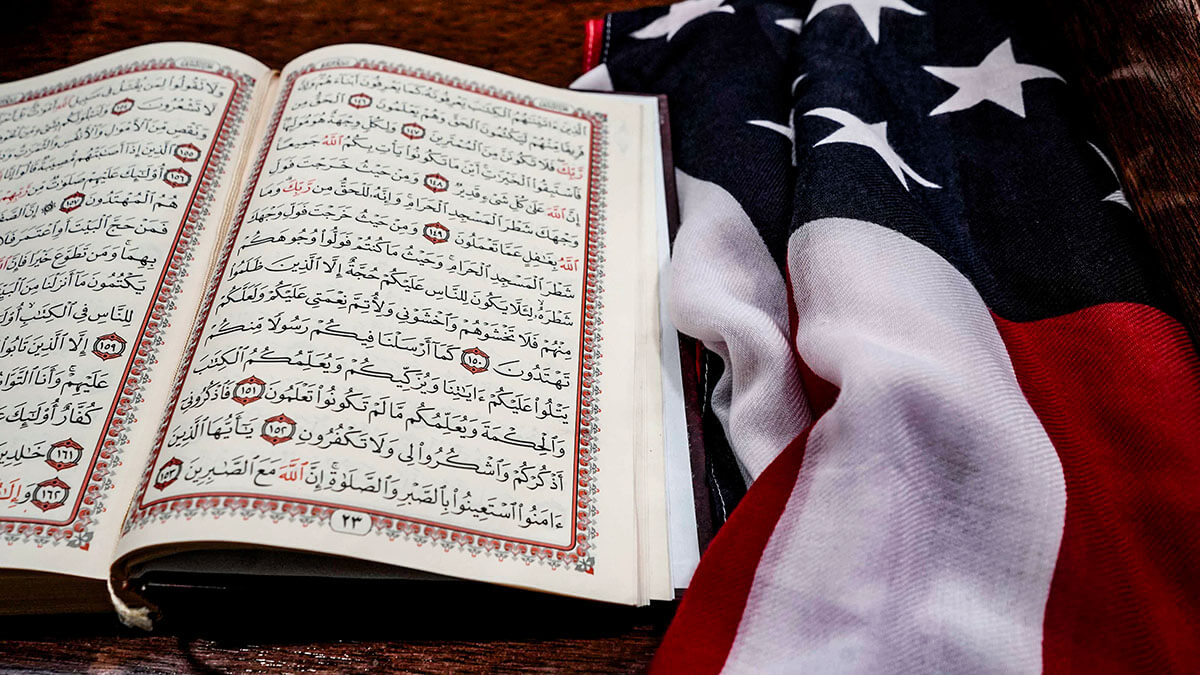 ٱلَّذِينَ ءَاتَيْنَٰهُمُ ٱلْكِتَٰبَ يَعْرِفُونَهُۥ كَمَا يَعْرِفُونَ أَبْنَآءَهُمْ وَإِنَّ
فَرِيقًا مِّنْهُمْ لَيَكْتُمُونَ ٱلْحَقَّ وَهُمْ يَعْلَمُونَ ١٤٦ ٱلْحَقُّ مِن
رَّبِّكَ فَلَا تَكُونَنَّ مِنَ ٱلْمُمْتَرِينَ ١٤٧ وَلِكُلٍّ وِجْهَةٌ هُوَ مُوَلِّيهَا
فَٱسْتَبِقُوا۟ ٱلْخَيْرَٰتِ أَيْنَ مَا تَكُونُوا۟ يَأْتِ بِكُمُ ٱللَّهُ جَمِيعًا
إِنَّ ٱللَّهَ عَلَىٰ كُلِّ شَىْءٍ قَدِيرٌ ١٤٨ وَمِنْ حَيْثُ خَرَجْتَ فَوَلِّ
وَجْهَكَ شَطْرَ ٱلْمَسْجِدِ ٱلْحَرَامِ وَإِنَّهُۥ لَلْحَقُّ مِن رَّبِّكَ وَمَا
ٱللَّهُ بِغَٰفِلٍ عَمَّا تَعْمَلُونَ ١٤٩ وَمِنْ حَيْثُ خَرَجْتَ فَوَلِّ وَجْهَكَ
شَطْرَ ٱلْمَسْجِدِ ٱلْحَرَامِ وَحَيْثُ مَا كُنتُمْ فَوَلُّوا۟ وُجُوهَكُمْ
شَطْرَهُۥ لِئَلَّا يَكُونَ لِلنَّاسِ عَلَيْكُمْ حُجَّةٌ إِلَّا ٱلَّذِينَ ظَلَمُوا۟
مِنْهُمْ فَلَا تَخْشَوْهُمْ وَٱخْشَوْنِى وَلِأُتِمَّ نِعْمَتِى عَلَيْكُمْ وَلَعَلَّكُمْ
تَهْتَدُونَ ١٥٠ كَمَآ أَرْسَلْنَا فِيكُمْ رَسُولًا مِّنكُمْ
يَتْلُوا۟ عَلَيْكُمْ ءَايَٰتِنَا وَيُزَكِّيكُمْ وَيُعَلِّمُكُمُ ٱلْكِتَٰبَ
وَٱلْحِكْمَةَ وَيُعَلِّمُكُم مَّا لَمْ تَكُونُوا۟ تَعْلَمُونَ ١٥١ فَٱذْكُرُونِىٓ
أَذْكُرْكُمْ وَٱشْكُرُوا۟ لِى وَلَا تَكْفُرُونِ ١٥٢ يَٰٓأَيُّهَا ٱلَّذِينَ
ءَامَنُوا۟ ٱسْتَعِينُوا۟ بِٱلصَّبْرِ وَٱلصَّلَوٰةِ إِنَّ ٱللَّهَ مَعَ ٱلصَّٰبِرِينَ ١٥٣
٢٣
وَلَا تَقُولُوا۟ لِمَن يُقْتَلُ فِى سَبِيلِ ٱللَّهِ أَمْوَٰتٌۢ
لَّا تَشْعُرُونَ ١٥٤ وَلَنَبْلُوَنَّكُم بِشَىْءٍ مِّنَ
وَنَقْصٍ مِّنَ ٱلْأَمْوَٰلِ وَٱلْأَنفُسِ وَٱلثَّمَرَٰتِ
١٥٥ ٱلَّذِينَ إِذَآ أَصَٰبَتْهُم مُّصِيبَةٌ قَالُوٓا۟ إِنَّا
١٥٦ أُو۟لَٰٓئِكَ عَلَيْهِمْ صَلَوَٰتٌ مِّن رَّبِّهِمْ
هُمُ ٱلْمُهْتَدُونَ ١٥٧ إِنَّ ٱلصَّفَا
فَمَنْ حَجَّ ٱلْبَيْتَ أَوِ ٱعْتَمَرَ فَلَا
بِهِمَا وَمَن تَطَوَّعَ خَيْرًا فَإِنَّ
يَكْتُمُونَ مَآ أَنزَلْنَا مِنَ
لِلنَّاسِ فِى ٱلْكِتَٰبِ
١٥٩ إِلَّا ٱلَّذِينَ تَابُوا۟
عَلَيْهِمْ وَأَنَا ٱلتَّوَّابُ
كُفَّارٌ أُو۟لَٰٓئِكَ
١٦١ خَٰلِدِينَ
١٦٢